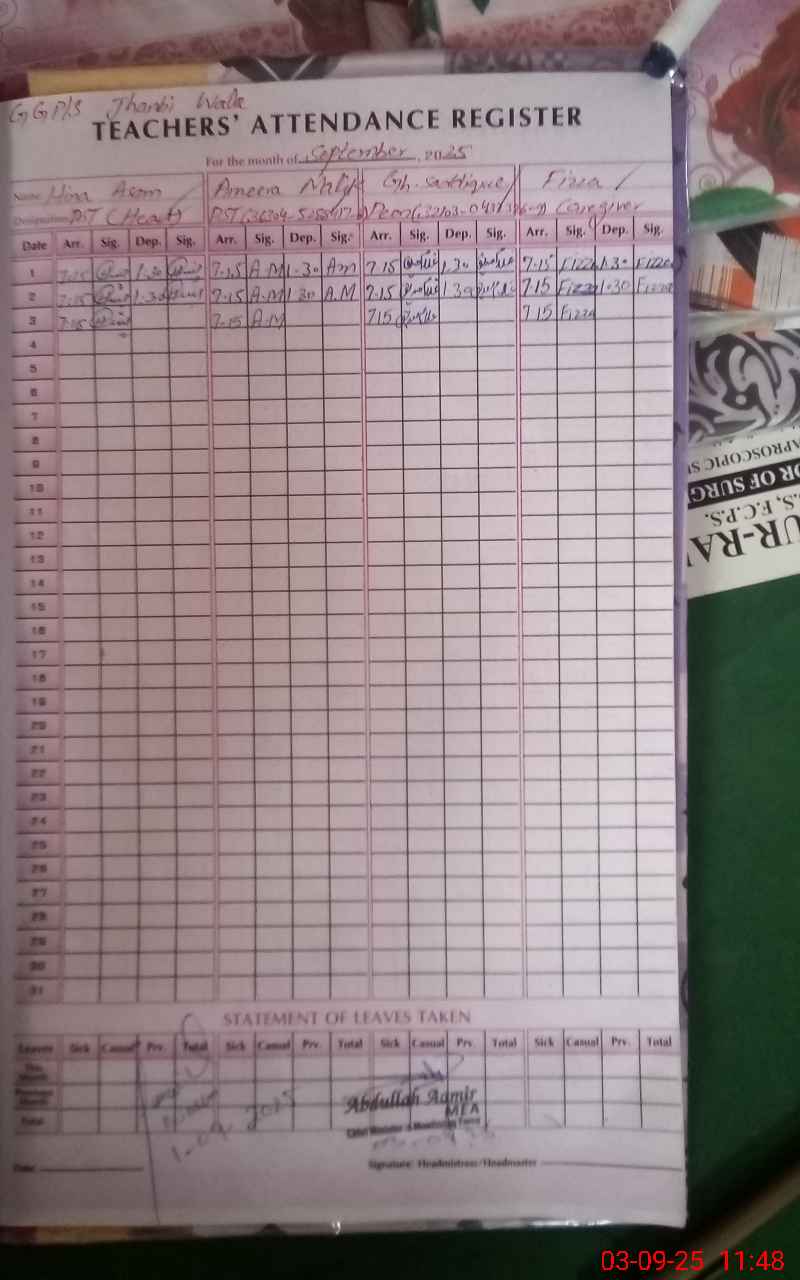 GGP/S Jhanbi Wala
TEACHERS' ATTENDANCE REGISTER
For the month of September, 2025
Name Hina Asam Ameera Gh. Fizza
Designation PST (Head) PST Peon Caregiver
Date Arr. Sig. Dep. Sig. Arr. Sig. Dep. Sig. Arr. Sig. Dep. Sig. Arr. Sig. Dep. Sig.
1 7-15 1-30 7-15 A.M 1-30 Am 7 15 1.30 7-15 Fizza 1.30 Fizza
2 7-15 1-30 7-15 A.M 1 30 A.M 7-15 1 30 7 15 Fizza 1-30 Fizza
3 7-15 7-15 A.M 7 15 7 15 Fizza
4
5
6
7
8
9
10
11
12
13
14
15
16
17
18
19
20
21
22
23
24
25
26
27
28
29
30
31
STATEMENT OF LEAVES TAKEN
Leaves Sick Casual Prv. Total Sick Casual Prv. Total Sick Casual Prv. Total Sick Casual Prv. Total
This Month
Previous Month
Total
1-09-2025
Abdullah Aamir
MEA
Date
Signature: Headmistress/Headmaster
APROSCOPIC S
OR OF SURG
.S, F.C.P.S.
UR-RA
03-09-25 11:48